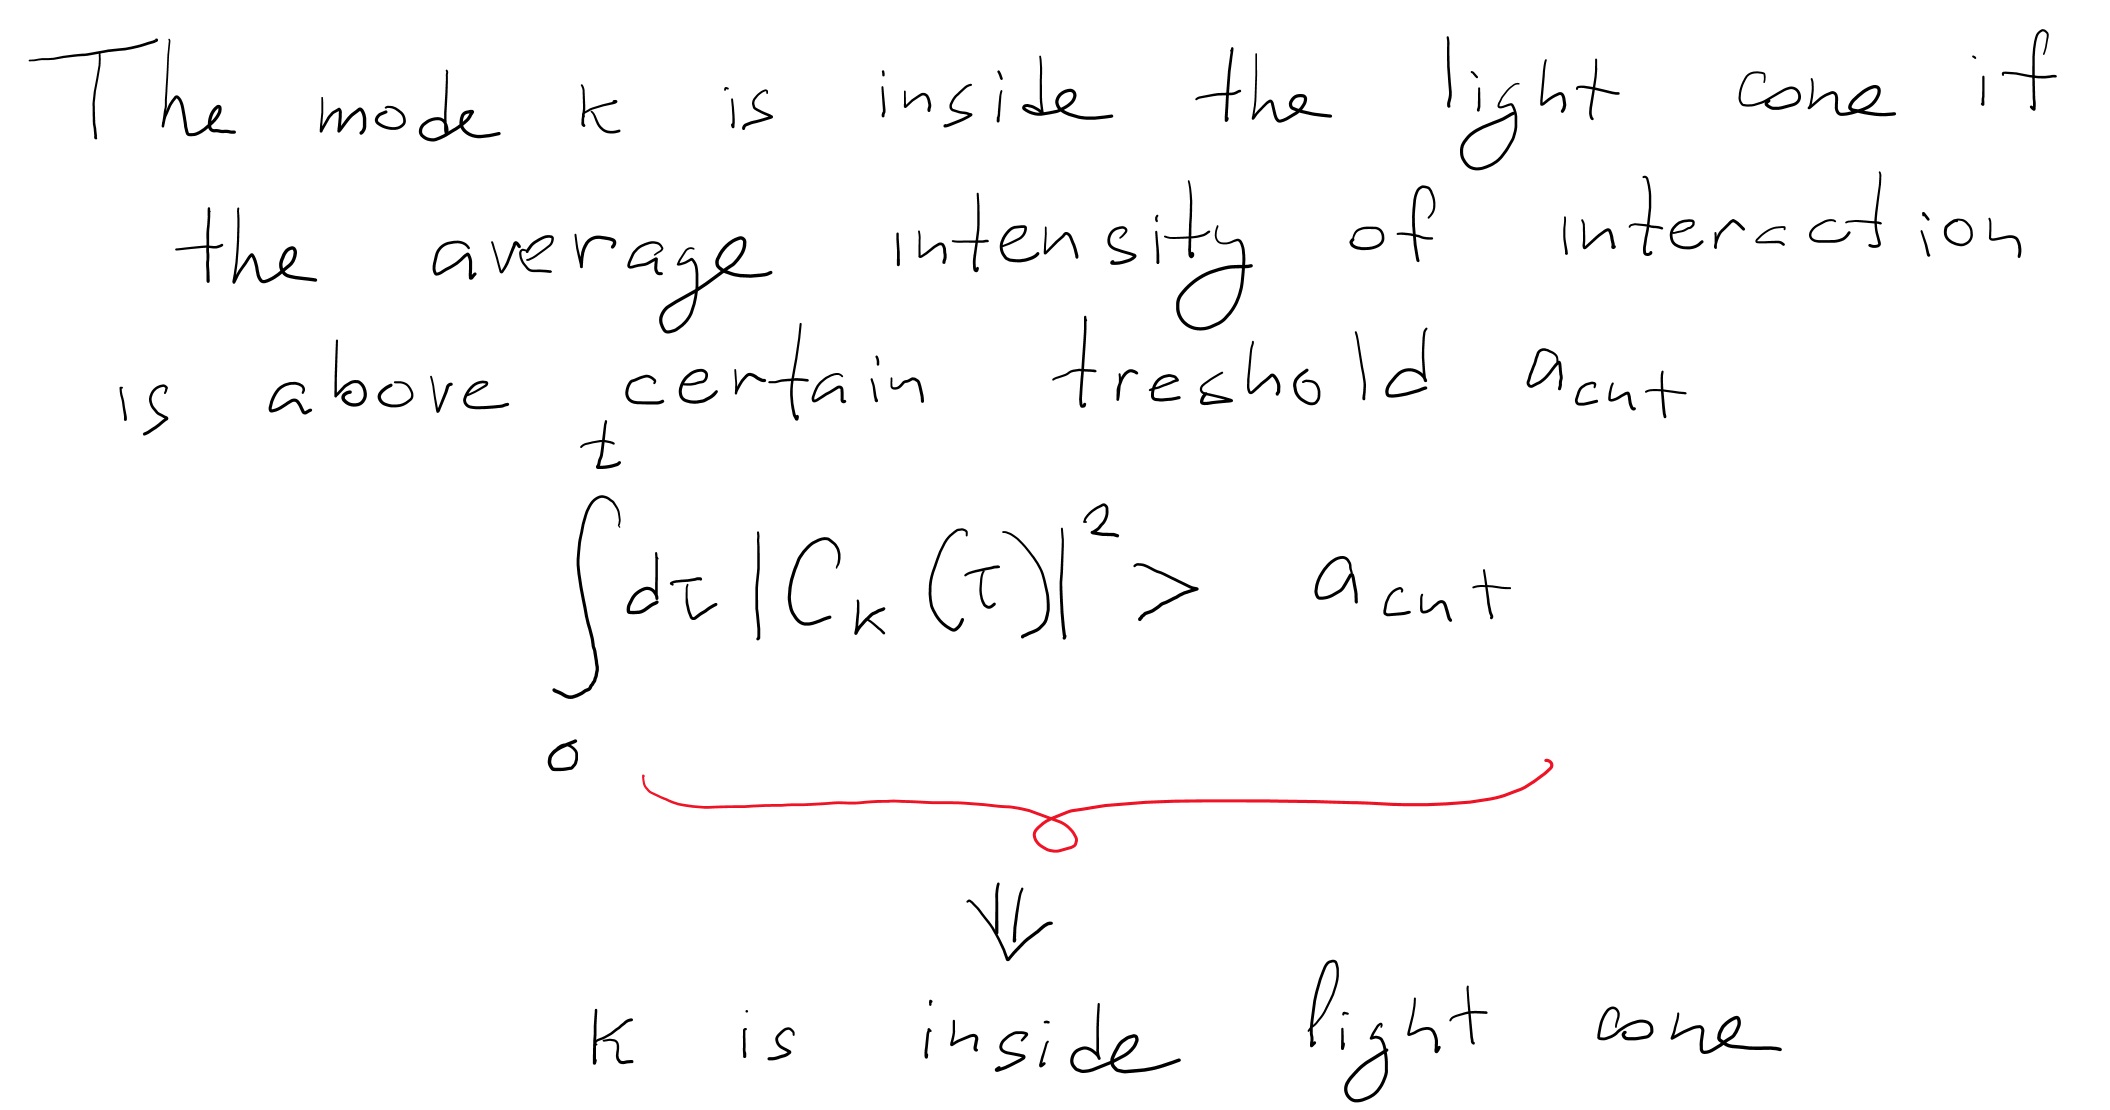 The mode k is inside the light cone if
the average intensity of interaction
is above certain treshold a_cut
∫_0^t dτ |C_k(τ)|^2 > a_cut
⇓
k is inside light cone